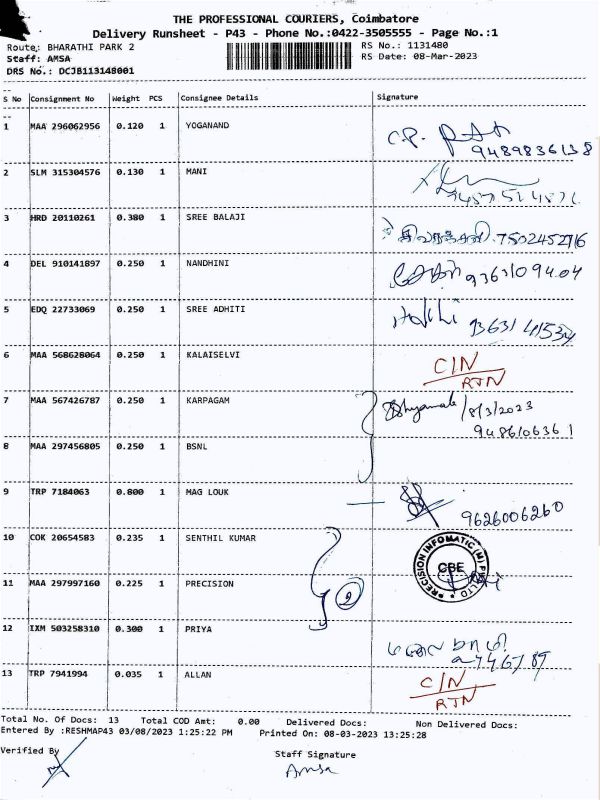 THE PROFESSIONAL COURIERS, Coimbatore
Delivery Runsheet - P43 - Phone No.:0422-3505555 - Page No.:1
Route: BHARATHI PARK 2 RS No.: 1131480
Staff: AMSA RS Date: 08-Mar-2023
DRS No.: DCJB113148001
S No Consignment No Weight PCS Consignee Details Signature
1 MAA 296062956 0.120 1 YOGANAND
9489836138
2 SLM 315304576 0.130 1 MANI
3 HRD 20110261 0.380 1 SREE BALAJI
7502452716
4 DEL 910141897 0.250 1 NANDHINI
9363109404
5 EDQ 22733069 0.250 1 SREE ADHITI
6 MAA 568628064 0.250 1 KALAISELVI C/N
RTN
7 MAA 567426787 0.250 1 KARPAGAM Shyamala /8/3/2023
9486106361
8 MAA 297456805 0.250 1 BSNL
9 TRP 7184063 0.800 1 MAG LOUK
9626006260
10 COK 20654583 0.235 1 SENTHIL KUMAR
PRECISION INFOMATIC (M) PVT LTD
CBE
11 MAA 297997160 0.225 1 PRECISION 2
12 IXM 503258310 0.300 1 PRIYA
13 TRP 7941994 0.035 1 ALLAN C/N
RTN
Total No. Of Docs: 13 Total COD Amt: 0.00 Delivered Docs: Non Delivered Docs:
Entered By :RESHMAP43 03/08/2023 1:25:22 PM Printed On: 08-03-2023 13:25:28
Verified By Staff Signature
Amsa